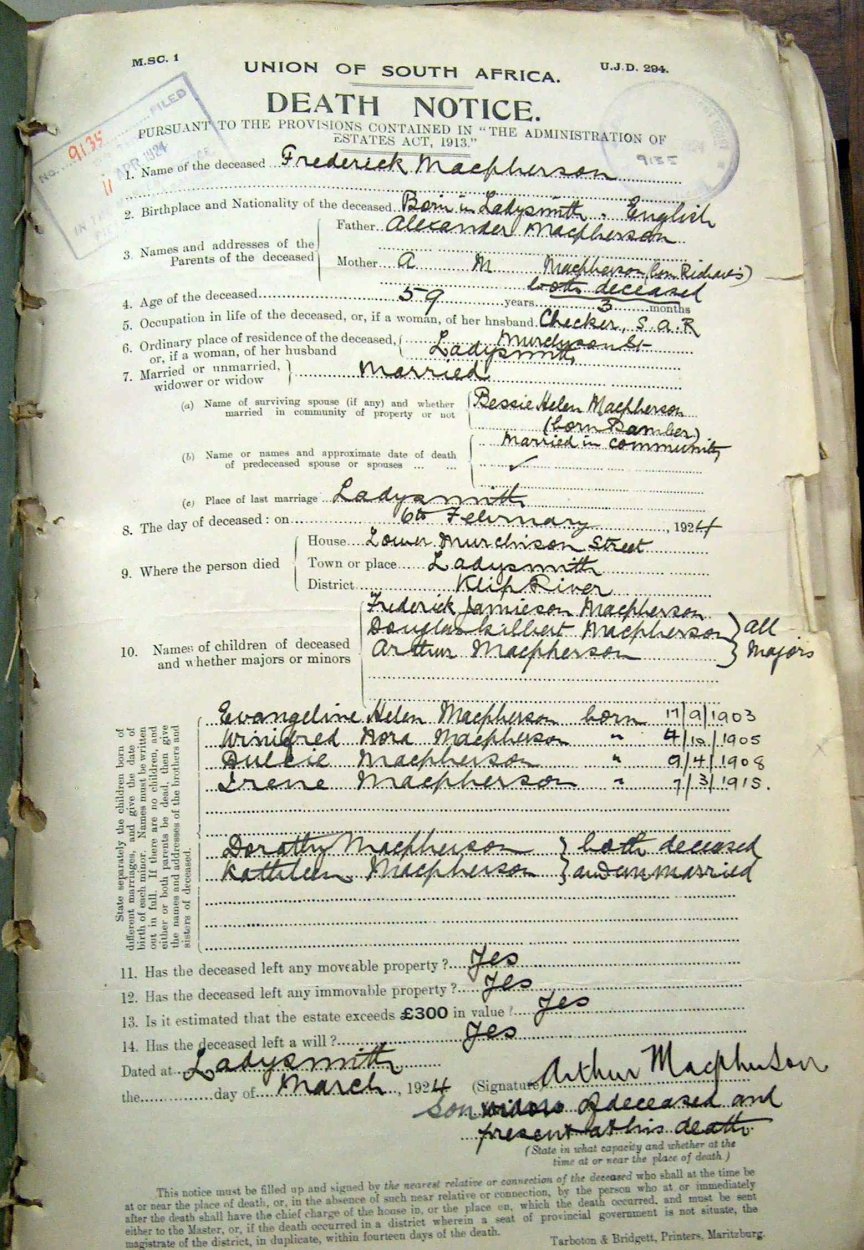 M.SC. 1
UNION OF SOUTH AFRICA.
U.J.D. 294.
DEATH NOTICE.
PURSUANT TO THE PROVISIONS CONTAINED IN "THE ADMINISTRATION OF
ESTATES ACT, 1913."
NO. 9135 FILED
11 APR 1924
9135
1. Name of the deceased Frederick Macpherson
2. Birthplace and Nationality of the deceased Born in Ladysmith. English
3. Names and addresses of the Parents of the deceased
Father Alexander Macpherson
Mother A M Macpherson (born
both deceased
4. Age of the deceased 59 years 3 months
5. Occupation in life of the deceased, or, if a woman, of her hnsband Checker, S.A.R
6. Ordinary place of residence of the deceased, or, if a woman, of her husband
Murchison St
Ladysmith
7. Married or unmarried, widower or widow
Married
(a) Name of surviving spouse (if any) and whether married in community of property or not
Bessie Helen Macpherson
(born Bamber)
Married in community
(b) Name or names and approximate date of death of predeceased spouse or spouses ... ...
(c) Place of last marriage Ladysmith
8. The day of deceased: on 6th February, 1924
9. Where the person died
House Lower Murchison Street
Town or place Ladysmith
District Klip River
10. Names of children of deceased and whether majors or minors
Frederick Jamieson Macpherson
Douglas Gilbert Macpherson
Arthur Macpherson
all
Majors
State separately the children born of
different marriages, and give the date of
birth of each minor. Names must be written
out in full. If there are no children, and
either or both parents be dead, then give
the names and addresses of the brothers and
sisters of deceased.
Evangeline Helen Macpherson born 17/9/1903
Winifred Nora Macpherson " 4/10/1905
Dulcie Macpherson " 9/4/1908
Irene Macpherson " 7/3/1915.
Dorothy Macpherson } both deceased
Kathleen Macpherson } and unmarried
11. Has the deceased left any moveable property? Yes
12. Has the deceased left any immovable property? Yes
13. Is it estimated that the estate exceeds £300 in value? Yes
14. Has the deceased left a will? Yes
Dated at Ladysmith
the day of March, 1924
(Signature) Arthur Macpherson
Son widow of deceased and
present at his death
(State in what capacity and whether at the
time at or near the place of death.)
This notice must be filled up and signed by the nearest relative or connection of the deceased who shall at the time be
at or near the place of death, or, in the absence of such near relative or connection, by the person who at or immediately
after the death shall have the chief charge of the house in, or the place on, which the death occurred, and must be sent
either to the Master, or, if the death occurred in a district wherein a seat of provincial government is not situate, the
magistrate of the district, in duplicate, within fourteen days of the death.
Tarboton & Bridgett, Printers, Maritzburg.